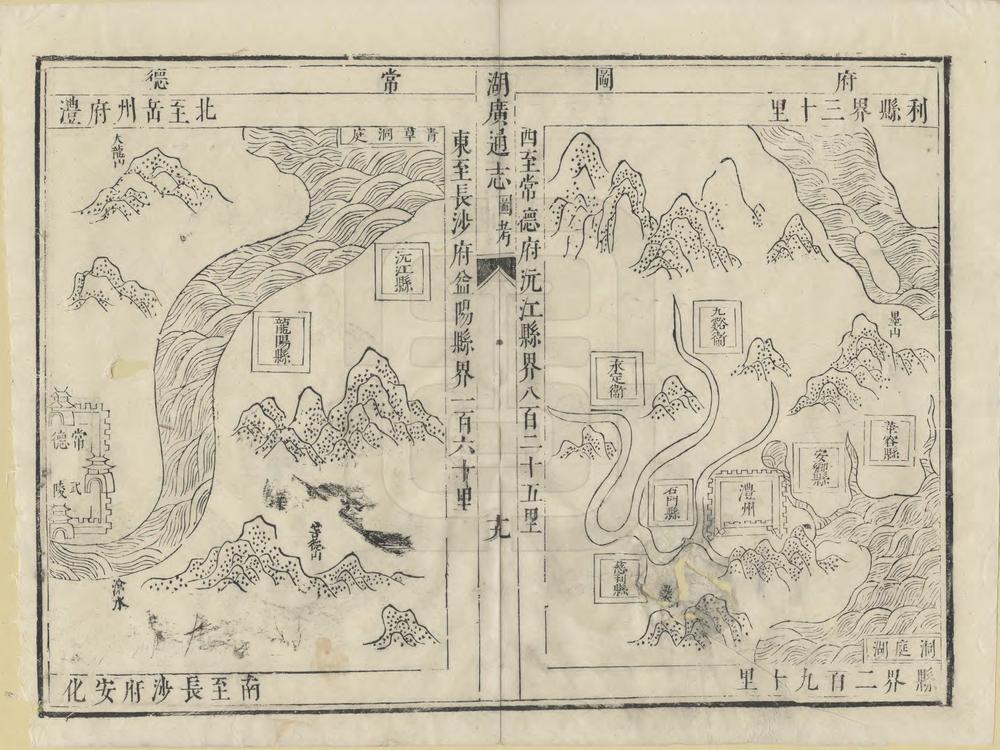 府圖
利縣界三十里
西至常德府沅江縣界八百二十五里
墨山
九谿衞
永定衞
華容縣
安鄉縣
澧州
石門縣
慈利縣
洞庭湖
縣界二百九十里
湖廣通志
圖考
十九
常德
北至岳州府澧
東至長沙府益陽縣界一百六十里
青草洞庭
大龍山
沅江縣
龍陽縣
常德
武陵
滄水
南至長沙府安化